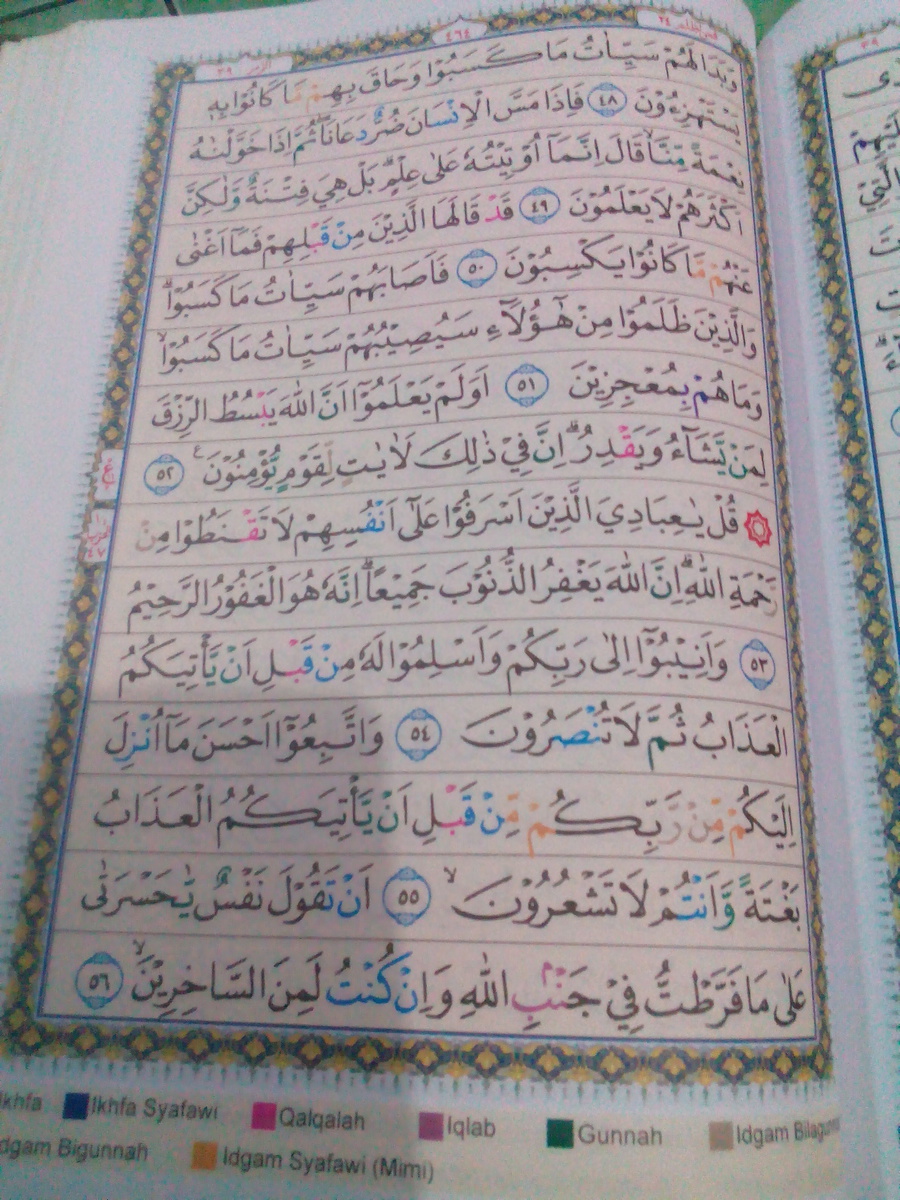 الزمر ٣٩
٤٦٤
فمن اظلم ٢٤
وَبَدَا لَهُمْ سَيِّاٰتُ مَا كَسَبُوْا وَحَاقَ بِهِمْ مَّا كَانُوْا بِهٖ
يَسْتَهْزِءُوْنَ ٤٨ فَاِذَا مَسَّ الْاِنْسَانَ ضُرٌّ دَعَانَاۖ ثُمَّ اِذَا خَوَّلْنٰهُ
نِعْمَةً مِّنَّاۙ قَالَ اِنَّمَآ اُوْتِيْتُهٗ عَلٰى عِلْمٍۗ بَلْ هِيَ فِتْنَةٌ وَّلٰكِنَّ
اَكْثَرَهُمْ لَا يَعْلَمُوْنَ ٤٩ قَدْ قَالَهَا الَّذِيْنَ مِنْ قَبْلِهِمْ فَمَآ اَغْنٰى
عَنْهُمْ مَّا كَانُوْا يَكْسِبُوْنَ ٥٠ فَاَصَابَهُمْ سَيِّاٰتُ مَا كَسَبُوْاۗ
وَالَّذِيْنَ ظَلَمُوْا مِنْ هٰٓؤُلَاۤءِ سَيُصِيْبُهُمْ سَيِّاٰتُ مَا كَسَبُوْاۙ
وَمَا هُمْ بِمُعْجِزِيْنَ ٥١ اَوَلَمْ يَعْلَمُوْٓا اَنَّ اللّٰهَ يَبْسُطُ الرِّزْقَ
لِمَنْ يَّشَاۤءُ وَيَقْدِرُۗ اِنَّ فِيْ ذٰلِكَ لَاٰيٰتٍ لِّقَوْمٍ يُّؤْمِنُوْنَ ࣖ ٥٢
۞ قُلْ يٰعِبَادِيَ الَّذِيْنَ اَسْرَفُوْا عَلٰٓى اَنْفُسِهِمْ لَا تَقْنَطُوْا مِنْ
رَّحْمَةِ اللّٰهِۗ اِنَّ اللّٰهَ يَغْفِرُ الذُّنُوْبَ جَمِيْعًاۗ اِنَّهٗ هُوَ الْغَفُوْرُ الرَّحِيْمُ
٥٣ وَاَنِيْبُوْٓا اِلٰى رَبِّكُمْ وَاَسْلِمُوْا لَهٗ مِنْ قَبْلِ اَنْ يَّأْتِيَكُمُ
الْعَذَابُ ثُمَّ لَا تُنْصَرُوْنَ ٥٤ وَاتَّبِعُوْٓا اَحْسَنَ مَآ اُنْزِلَ
اِلَيْكُمْ مِّنْ رَّبِّكُمْ مِّنْ قَبْلِ اَنْ يَّأْتِيَكُمُ الْعَذَابُ
بَغْتَةً وَّاَنْتُمْ لَا تَشْعُرُوْنَۙ ٥٥ اَنْ تَقُوْلَ نَفْسٌ يّٰحَسْرَتٰى
عَلٰى مَا فَرَّطْتُّ فِيْ جَنْۢبِ اللّٰهِ وَاِنْ كُنْتُ لَمِنَ السَّاخِرِيْنَۙ ٥٦
Ikhfa Syafawi Qalqalah Iqlab Gunnah Idgam
Bigunnah Idgam Syafawi (Mimi)